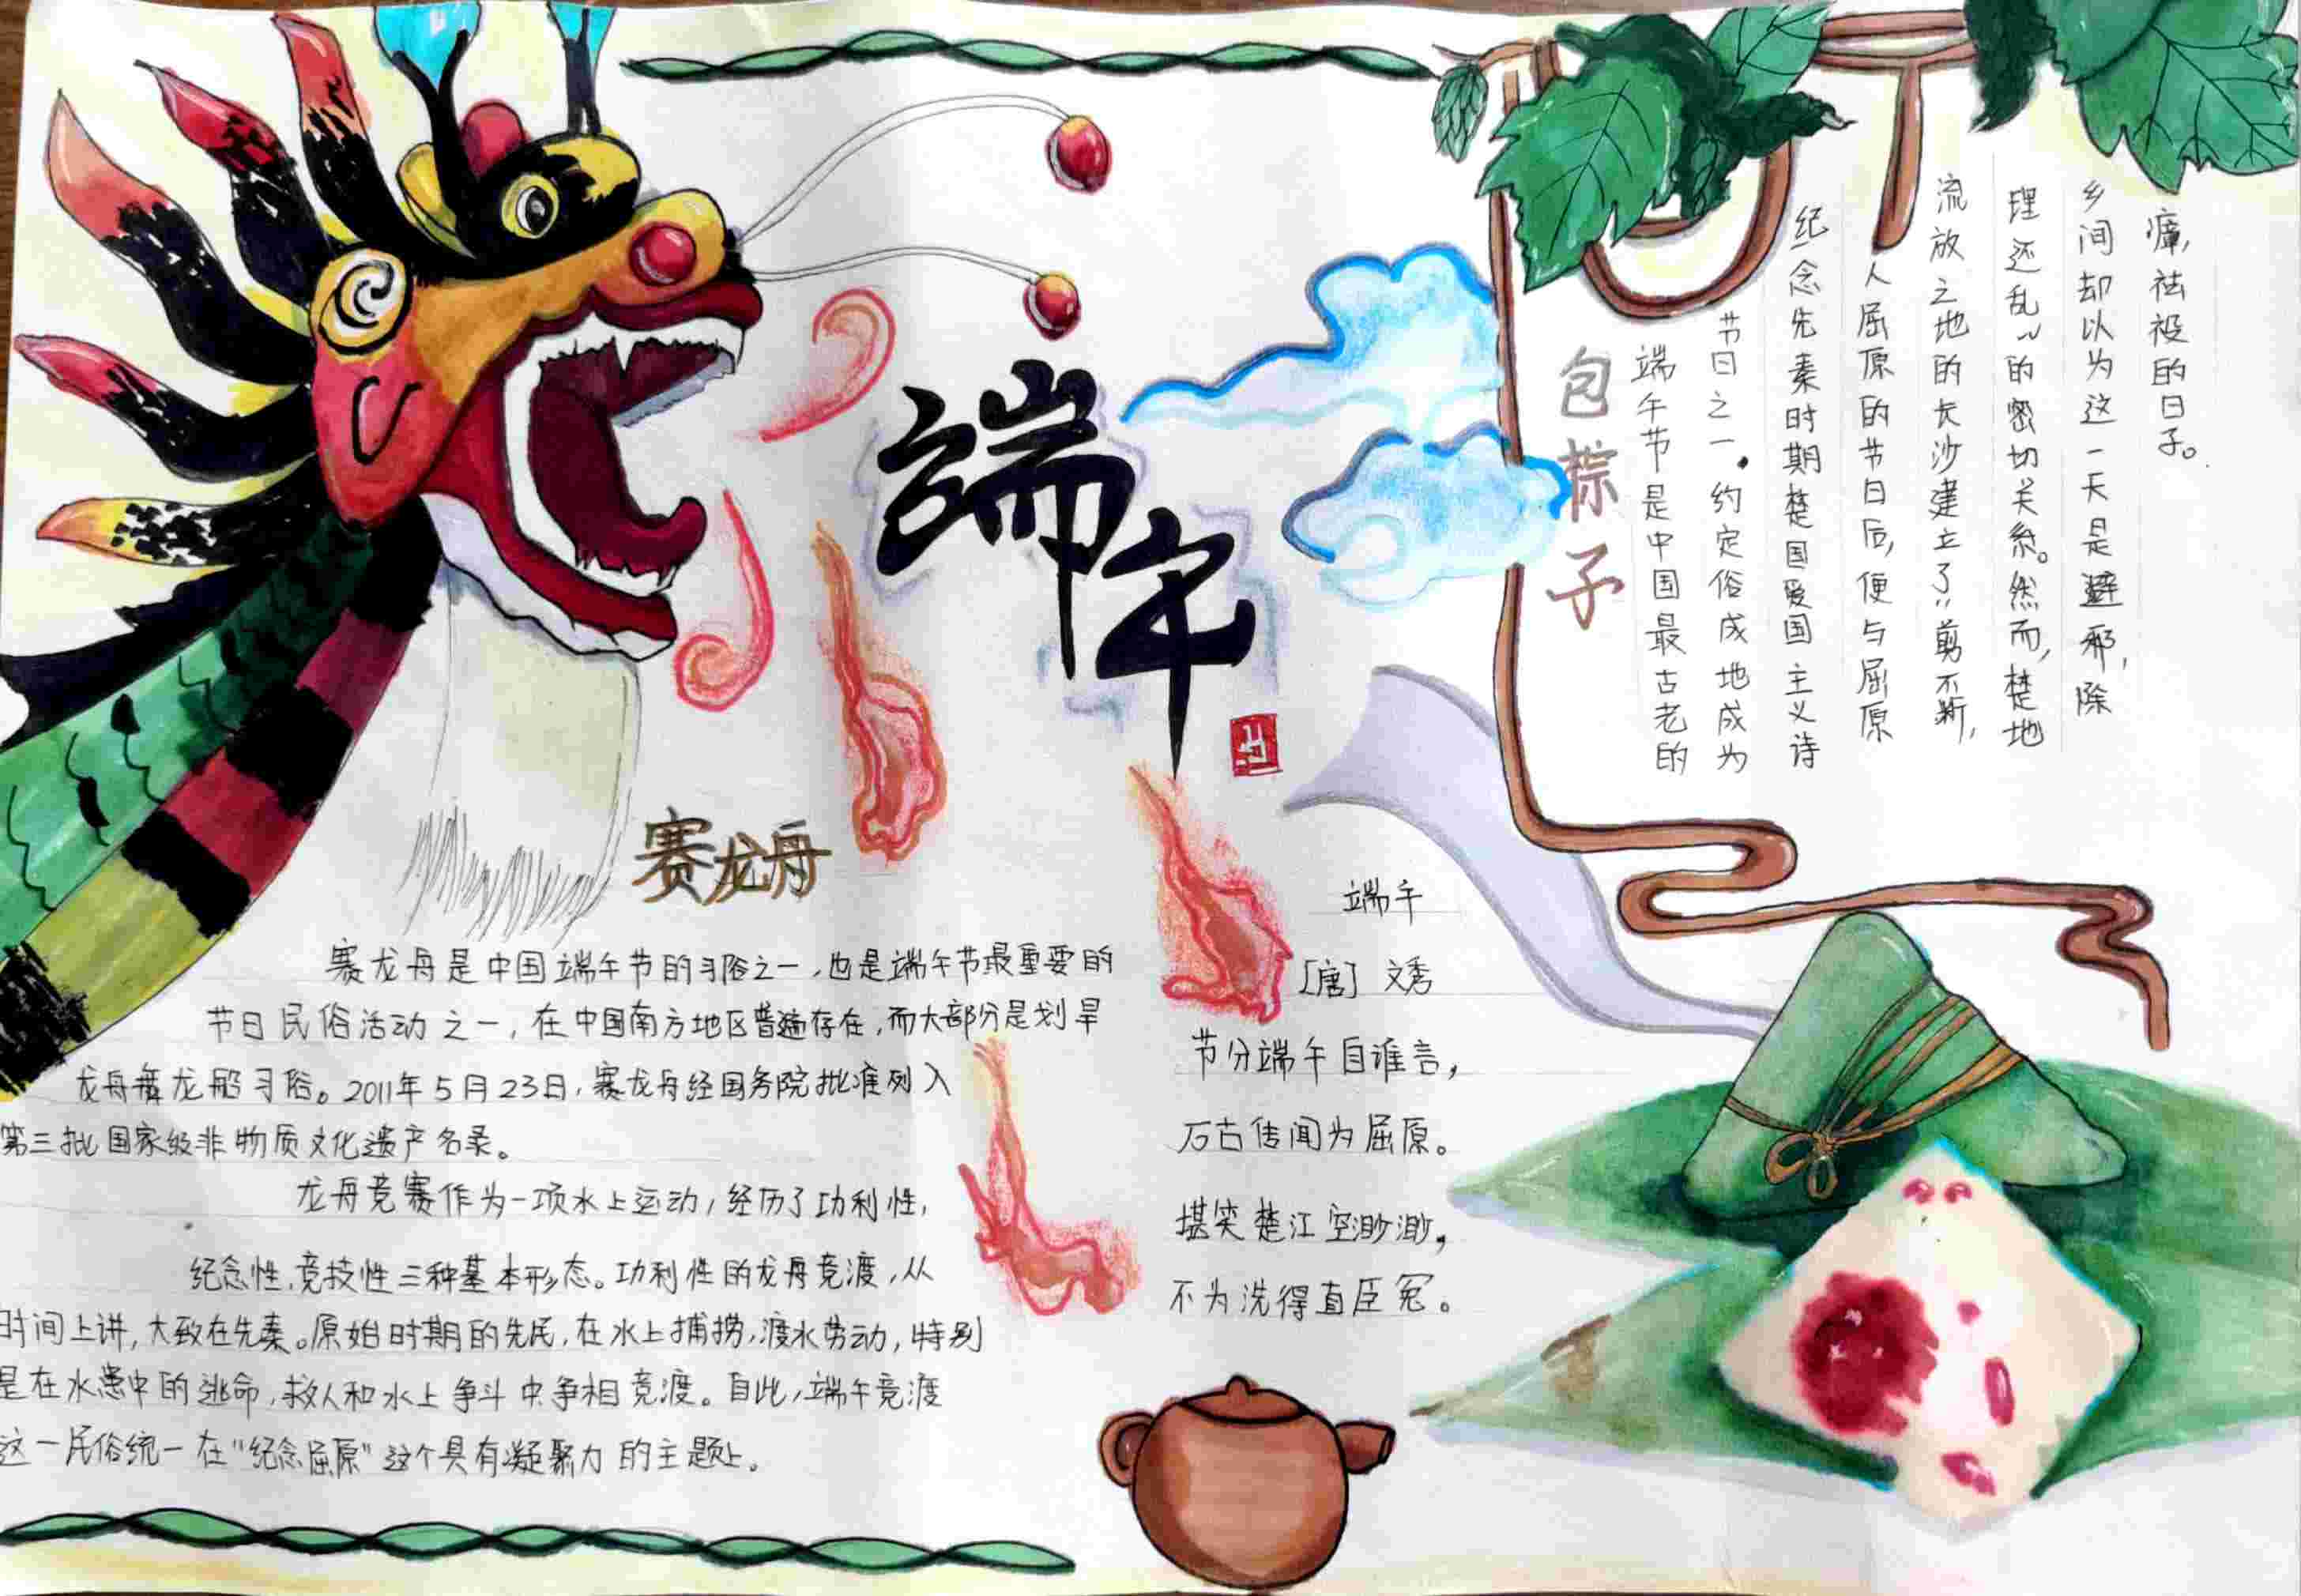 端午
赛龙舟
赛龙舟是中国端午节的习俗之一,也是端午节最重要的
节日民俗活动之一,在中国南方地区普遍存在,而大部分是划旱
龙舟舞龙船习俗。2011年5月23日,赛龙舟经国务院批准列入
第三批国家级非物质文化遗产名录。
龙舟竞赛作为一项水上运动,经历了功利性,
纪念性,竞技性三种基本形态。功利性的龙舟竞渡,从
时间上讲,大致在先秦。原始时期的先民,在水上捕捞,渡水劳动,特别
是在水患中的逃命,救人和水上争斗中争相竞渡。自此,端午竞渡
这一民俗统一在“纪念屈原”这个具有凝聚力的主题上。
端午
[唐] 文秀
节分端午自谁言,
万古传闻为屈原。
堪笑楚江空渺渺,
不为洗得直臣冤。
包粽子
端午节是中国最古老的
节日之一.约定俗成地成为
纪念先秦时期楚国爱国主义诗
人屈原的节日后,便与屈原
流放之地的长沙建立了“剪不断,
理还乱”的密切关系。然而,楚地
乡间却以为这一天是避邪,除
瘴,祛的日子。